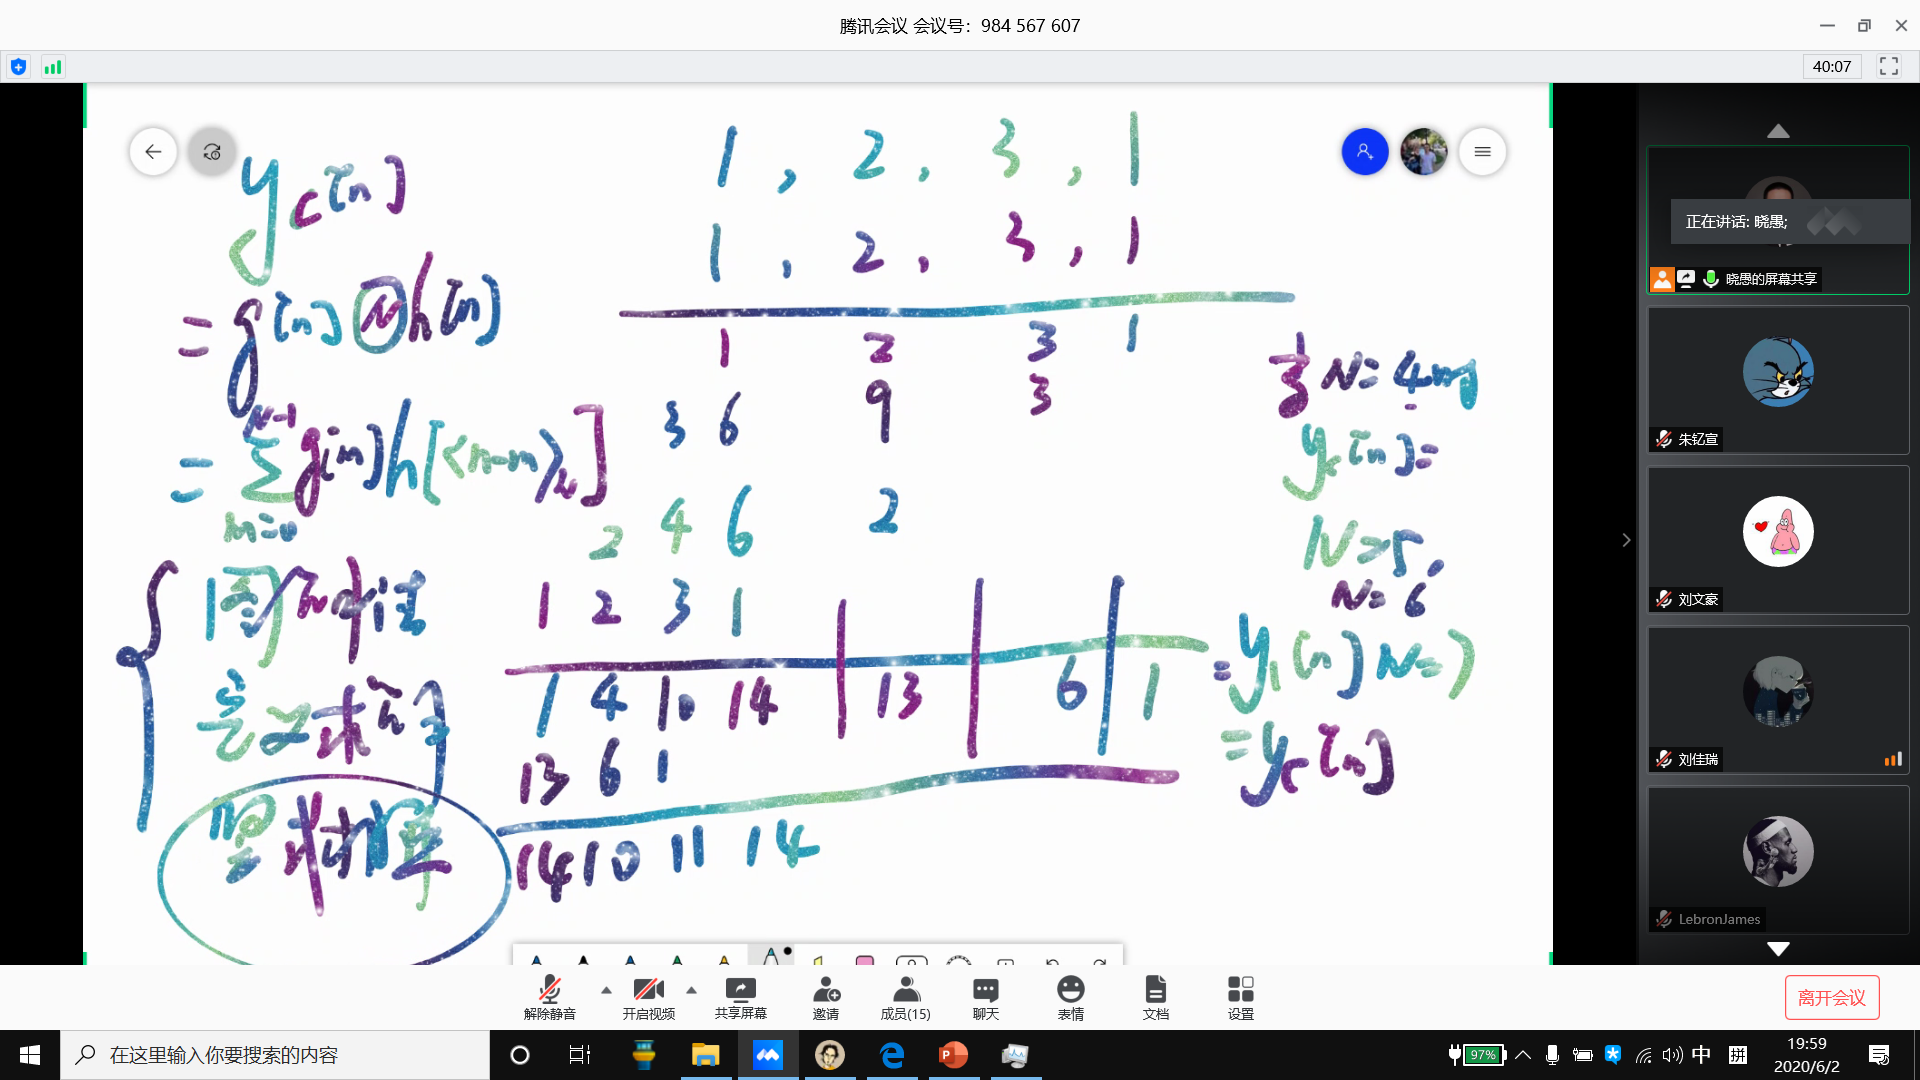 腾讯会议 会议号：984 567 607
40:07
y_c[n]
= g[n] Ⓝ h[n]
N-1
= Σ g[m] h[<n-m>_N]
m=0
定义求和
1 , 2 , 3 , 1
1 , 2 , 3 , 1
1 2 3 1
3 6 9 3
2 4 6 2
1 2 3 1
1 4 10 14 13 6 1
13 6 1
14 10 11 14
N=4时
y_c[n]=
N=5,
N=6
=y_1[n] N=7
=y_c[n]
正在讲话: 晓愚;
晓愚的屏幕共享
朱钇宣
刘文豪
刘佳瑞
LebronJames
解除静音
开启视频
共享屏幕
邀请
成员(15)
聊天
表情
文档
设置
离开会议
在这里输入你要搜索的内容
97%
中
拼
19:59
2020/6/2